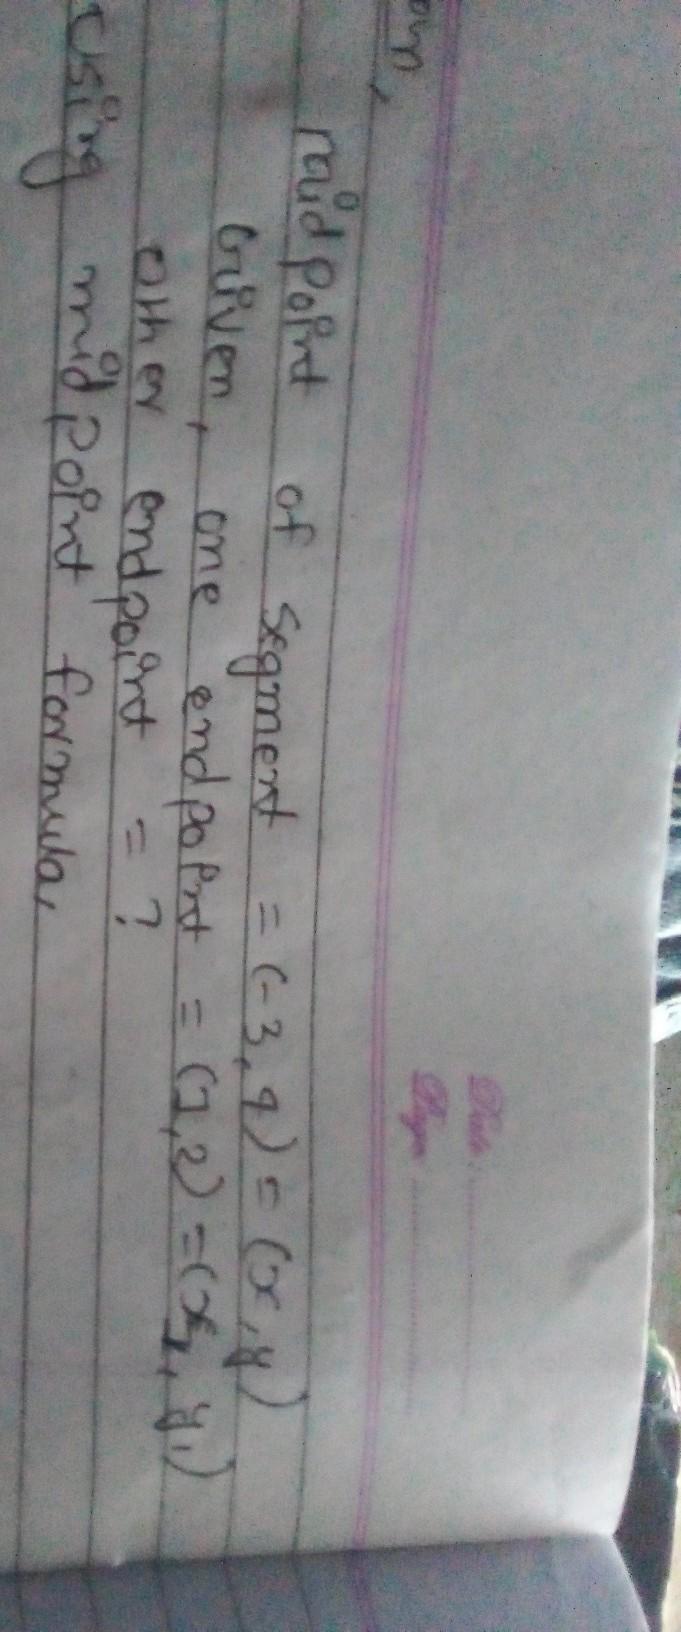 Date:
Page:
midpoint of segment = (-3, 4) = (x, y)
Given, one endpoint = (7, 2) = (x₁, y₁)
other endpoint = ?
using midpoint formula,